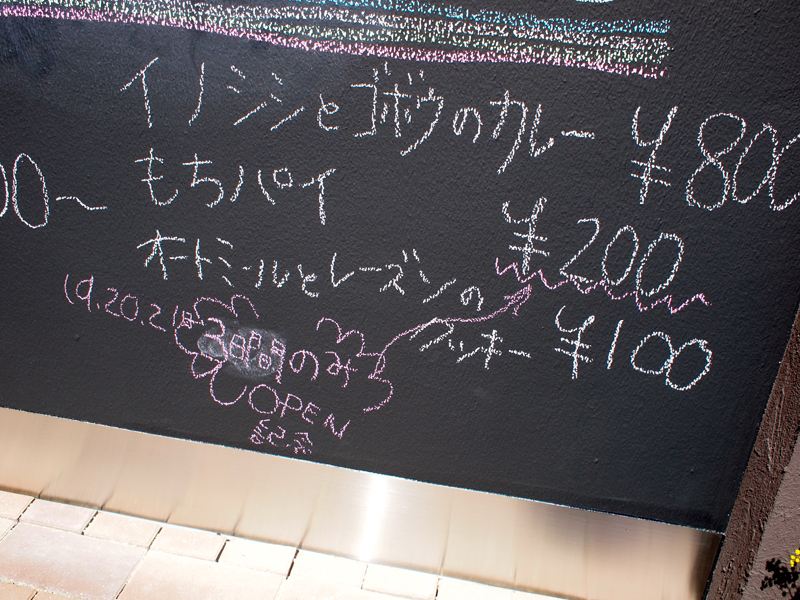 イノシシとゴボウのカレー ¥800
00〜
もちパイ ¥200
オートミールとレーズンの
クッキー ¥100
19.20.21は
3日間のみ
OPEN
記念